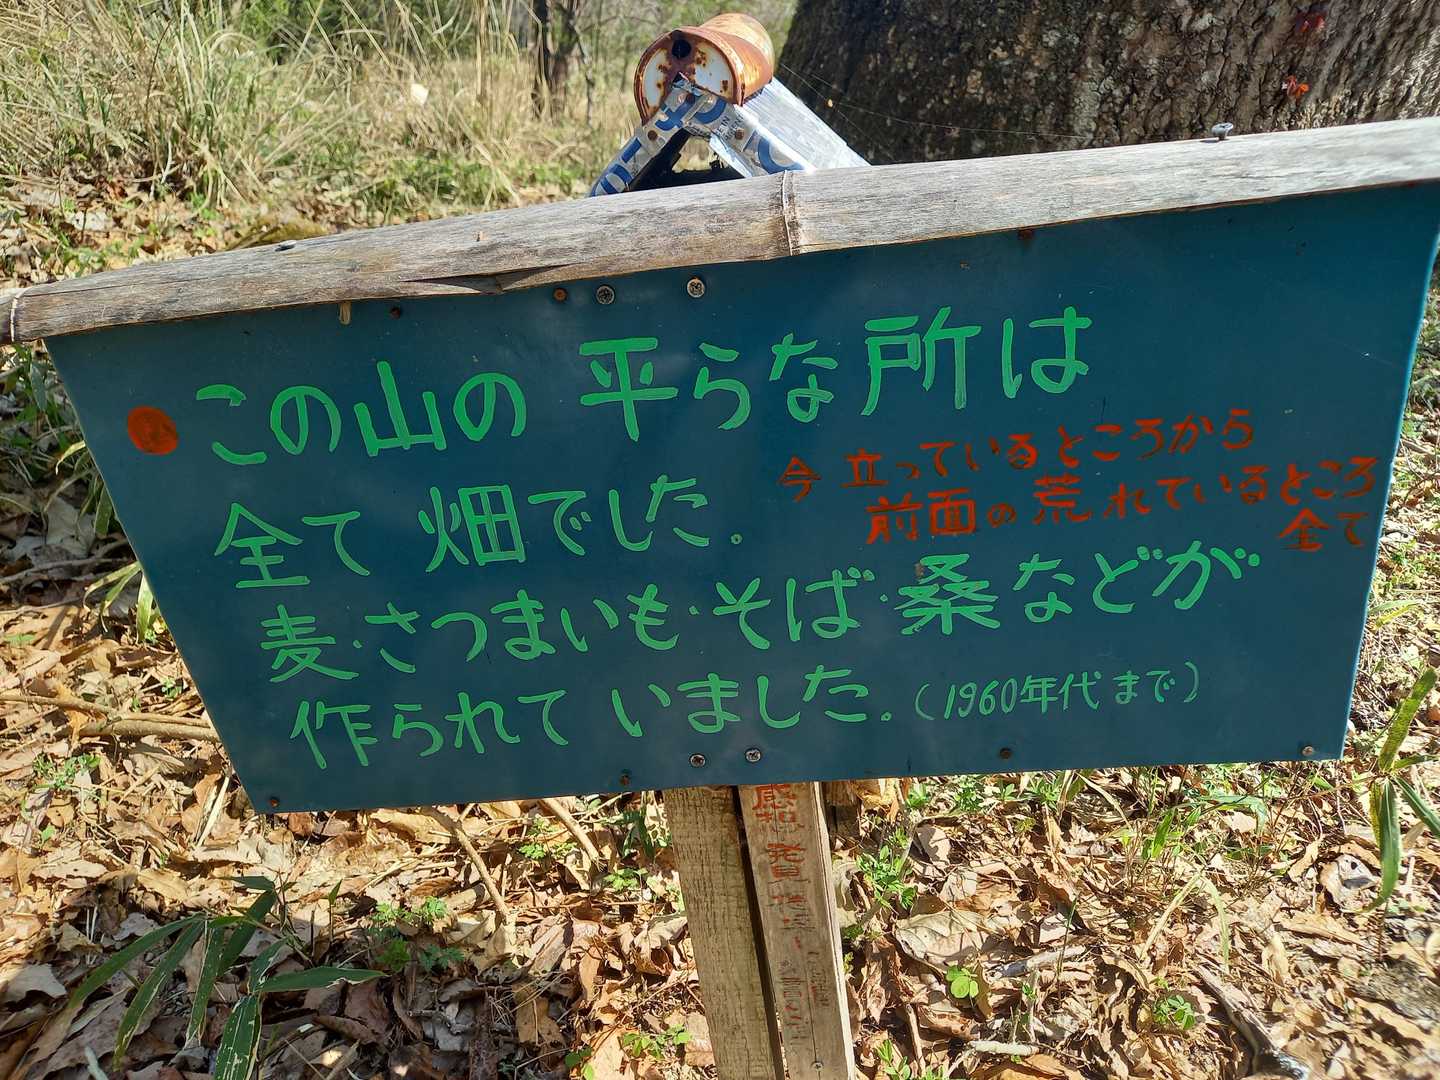 この山の 平らな所は
全て 畑でした。
今 立っているところから
前面の荒れているところ
全て
麦・さつまいも・そば・桑などが
作られて いました。(1960年代まで)
感想